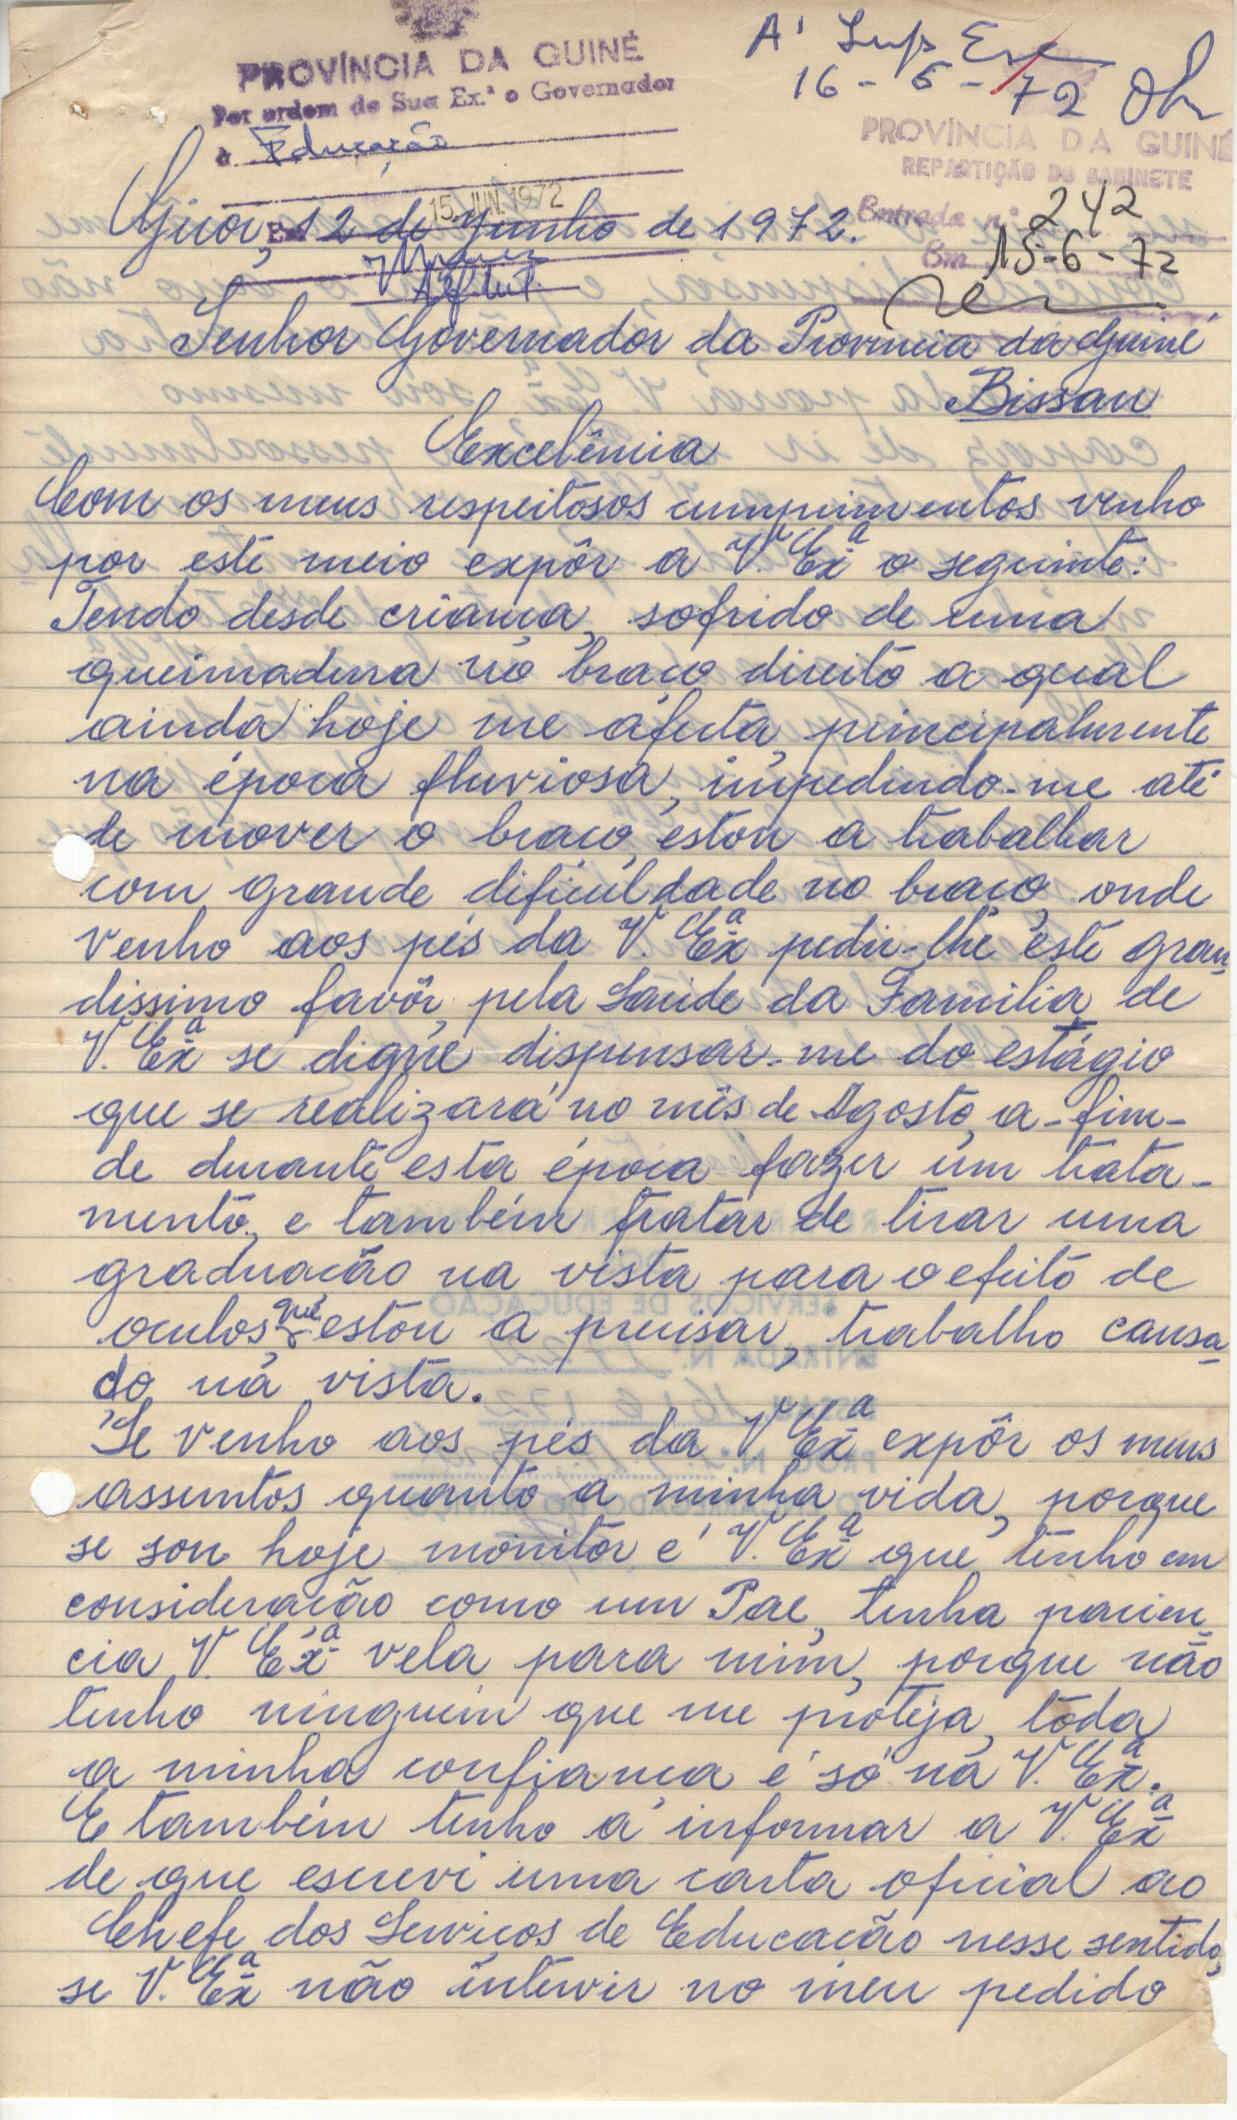 PROVÍNCIA DA GUINÉ
Por ordem de Sua Ex.ª o Governador
à Educação
Em 15. JUN. 1972
16 - 6 - 72
PROVÍNCIA DA GUINÉ
REPARTIÇÃO DO GABINETE
Entrada n.º 242
Em 15-6-72
12 de Junho de 1972.
Senhor Governador da Provincia da Guiné
Bissau
Excelência
Com os meus respeitósos cumprimentos venho
por este meio expôr a V. Exª o seguinte:
Tendo desde criança, sofrido de uma
queimadura no braço direito a qual
ainda hoje me áfecta, principalmente
na época fluviosa, impedindo-me até
de mover o braço, estou a trabalhar
com grande dificuldade no braço, onde
venho aos pés da V. Exª pedir-lhe este gran
dissimo favôr, pela Saúde da Familia, de
V. Exª se digne dispensar-me do estágio
que se realizará no mês de Agosto, a-fim-
de durante esta época fazer um trata-
mento, e também tratar de tirar uma
graduação na vista para o efeito de
oculos, que estou a precisar, trabalho causa
do na vista.
Se venho aos pés da V. Exª expôr os meus
assuntos quanto a minha vida, porque
se sou hoje monitor é V. Exª que tenho em
consideração como um Pae, tenha pacien
cia V. Exª vela para mim, porque não
tenho ninguém que me proteja, tôda
a minha confiança é só na V. Exª.
E também tenho á informar a V. Exª
de que escrevi uma carta oficial ao
Chefe dos Serviços de Educação nesse sentido,
se V. Exª não intervir no meu pedido